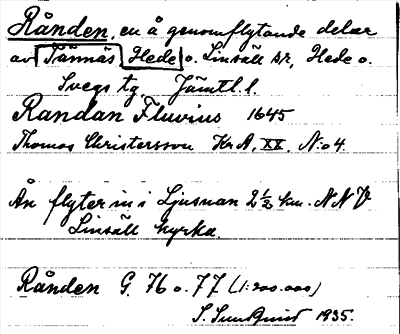 Rånden, en å genomflytande delar
av Tännäs Hede o. Linsäll sr, Hede o.
Svegs tg, Jämtl. l.
Randan Fluvius 1645
Thomas Christersson Kr A, XX, N:o 4
Ån flyter in i Ljusnan 2½ km. NNV
Linsäll kyrka.
Rånden G. 76 o. 77 (1:200.000)
S. Sundquist 1935.